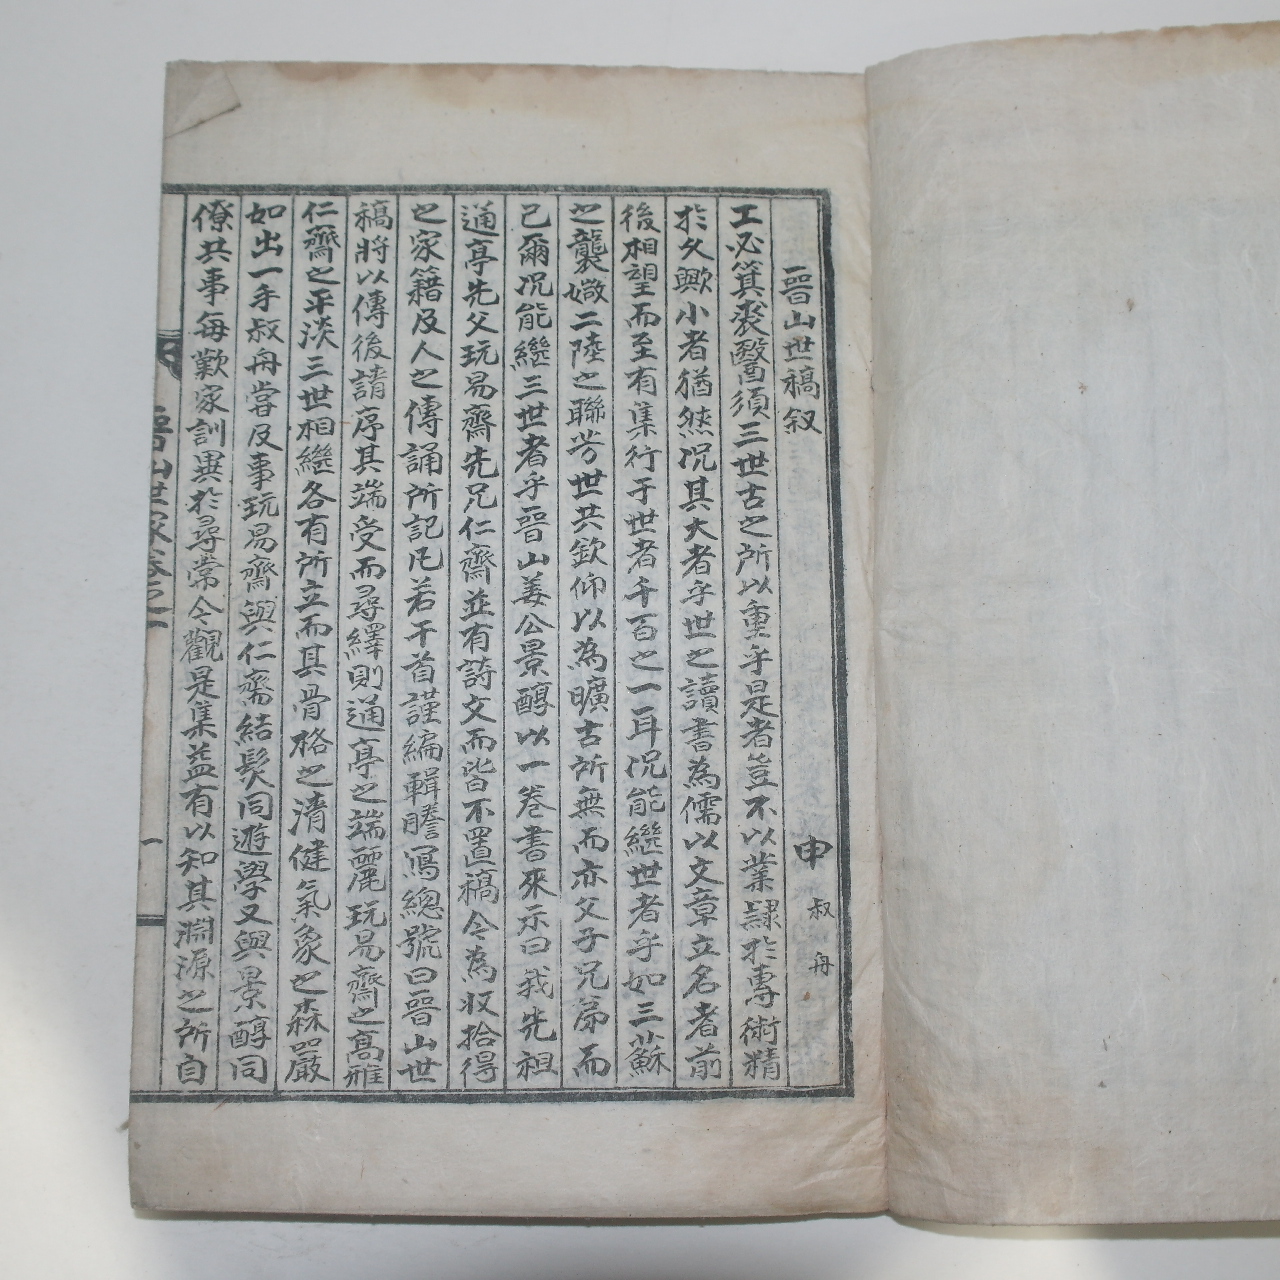 晉山世稿叙
申叔舟
工必箕裘醫須三世古之所以重乎是者豈不以業隷於專術精
於久歟小者猶然况其大者乎世之讀書為儒以文章立名者前
後相望而至有集行于世者千百之一耳况能繼世者乎如三蘇
之襲媺二陸之聯芳世共欽仰以為曠古所無而亦父子兄弟而
已爾况能繼三世者乎晉山姜公景醇以一卷書來示曰我先祖
通亭先父玩易齋先兄仁齋並有詩文而皆不置稿今為収拾得
之家籍及人之傳誦所記凡若干首謹編輯謄寫總號曰晉山世
稿將以傳後請序其端受而尋繹則通亭之端麗玩易齋之高雅
仁齋之平淡三世相繼各有所立而其骨格之清健氣象之森嚴
如出一手叔舟嘗及事玩易齋與仁齋結髮同遊學又與景醇同
僚共事每歎家訓異於尋常今觀是集益有以知其淵源之所自
晉山世稿卷之一
一